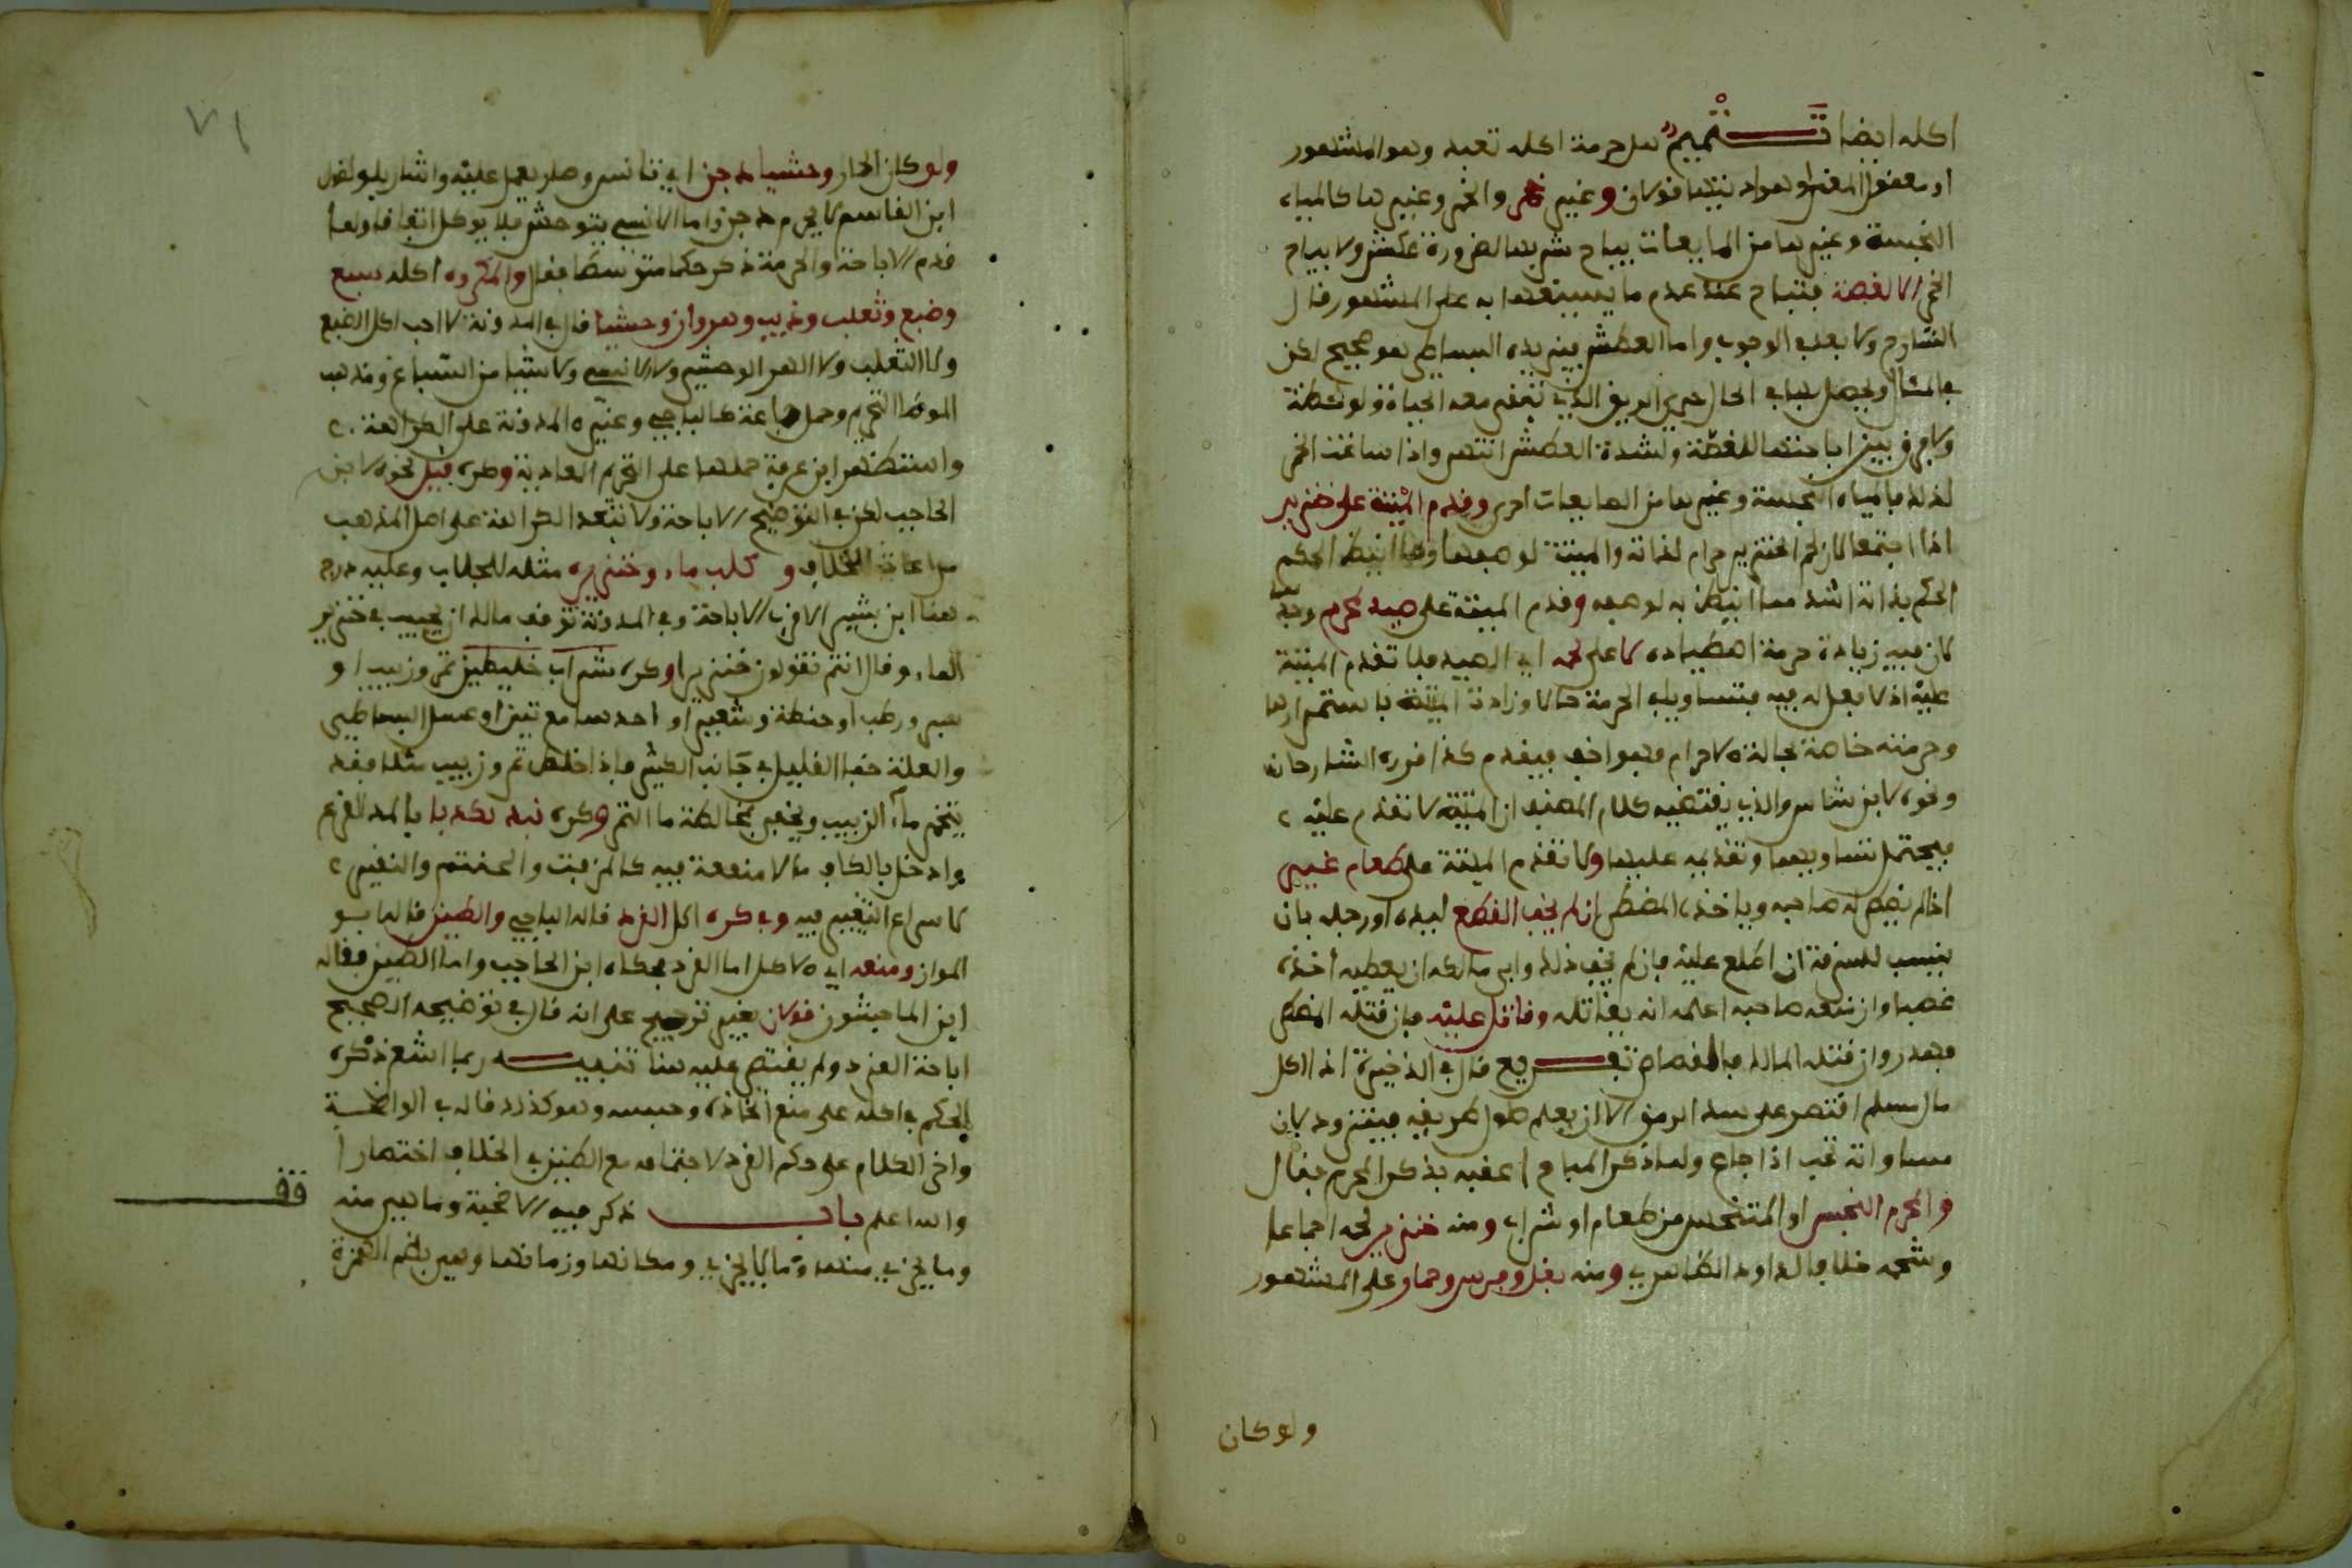 اكله ايضا تَتْميمٌ هل حرمة اكله تعبد وهو المشهور
او معقول المعنى وهو اذ يتها قولان وغير خمر والخمر وغيرها كالمياه
النجسة وغيرها من المايعات يباح شربها لضرورة عطش ولا يباح
الخمر الا لغصة فتباح عند عدم ما يسيغها به على المشهور قال
الشارح ولا يعد في الوجوب واما العطش فيزيده البساطي هو صحيح لكن
في المثال ويحصل بها في الحال الري الذي تبقى معه الحياة ولو لحظة
ولا فرق بين اباحتها للغصة ولشدة العطش انتهى واذا ساغت الخمر
لذلك فالمياه النجسة وغيرها من المايعات احرى وقدم الميتة على خنزير
اذا اجتمعا لان لحم الخنزير حرام لذاته والميتة لوصفها وما انيط الحكم
الحكم بذاته اشد مما انيط به لوصفه وقدم الميتة على صيد لمحرم وجد
كان فيه زيادة حرمة اصطياده لا على لحمه اي الصيد فلا تقدم الميتة
عليه اذ لا فعل له فيه فتساويا في الحرمة حالا وزادت الميتة باستمرارها
وحرمته خاصة بحالة الاحرام فهو اخف فيقدم كذا قرره الشارحان
ونحوه لابن شاس والذي يقتضيه كلام المصنف ان الميتة لا تقدم عليه
فيحتمل تساويهما وتقديمه عليها ولا تقدم الميتة على طعام غير
اذا لم يعطه صاحبه وياخذه المضطر ان لم يخف القطع ليده او رجله بان
ينسب للسرقة ان اطلع عليه فان لم يخف ذلك وابى مالكه ان يعطيه اخذه
غصبا وان منعه صاحبه اعلمه انه يقاتله وقاتل عليه فان قتله المضطر
فهدر وان قتله المالك فالقصاص تفريع قال في الذخيرة اذا اكل
مال مسلم اقتصر على سد الرمق الا ان يعلم طول طريقه فيتزود لان
مساواته تجب اذا جاع ولما ذكر المباح اعقبه بذكر المحرم فقال
والمحرم النجس او المتنجس من طعام او شراب ومنه خنزير لحمه اجماعا
وشحمه خلافا لداود الظاهري ومنه بغل وفرس وحمار على المشهور
ولو كان
٧١
ولو كان الحمار وحشيا دجن اي تانس وصار يعمل عليه واشار بلو لقول
ابن القاسم لا يحرم دجن واما الانسي يتوحش فلا يوكل اتفاقا ولما
قدم الاباحة والحرمة ذكر حكما متوسطا فقال والمكروه اكله سبع
وضبع وثعلب وذيب وهر وان وحشيا قال في المدونة لا احب اكل الضبع
ولا الثعلب ولا الهر الوحشي ولا الانسي ولا شيا من السباع ومذهب
الموطا التحريم وحمل جماعة كالباجي وغيره المدونة على الكراهة
واستظهر ابن عرفة حملها على التحريم العادية وكره فيل نحوه لابن
الحاجب لكن في التوضيح الاباحة ولا تبعد الكراهة على اصل المذهب
مراعاة للخلاف و كلب ماء وخنزيره مثله للجلاب وعليه درج
هنا ابن بشير الاقرب الاباحة وفي المدونة توقف مالك ان يجيب في خنزير
الماء وقال انتم تقولون خنزير او كره شراب خليطين تمر وزبيب او
بسر ورطب او حنطة وشعير او احدهما مع تين او عسل البساطي
والعلة خفا القليل في جانب الكثير فاذا خلط تمر وزبيب مثلا فقد
يتخمر ماء الزبيب ويخفى بمخالطة ما التمر وكره نبذ بكدبا بالمد للقرع
وادخل بالكاف ما لا منفعة فيه كالمزفت والحنتم والنقير
لاسراع التغيير فيه وفي كره اكل القرد قاله الباجي والطين قاله ابو
المواز ومنعه اي الاكل اما القرد فحكاه ابن الحاجب واما الطين فقاله
ابن الماجشون قولان بغير ترجيح على انه قال في توضيحه الصحيح
اباحة القرد ولم يقتصر عليه هنا تنبيه ربما اشعر ذكره
الحكم في اكله على منع اتخاذه وحبسه وهو كذلك قاله في الواضحة
واخر الكلام على حكم القرد لاجتماعه مع الطين في الخلاف اختصارا
والله اعلم باب ذكر فيه الاضحية وما هي منه
وما يجزي منها وما لا يجزي ومكانها وزمانها وهي بضم الهمزة
قف